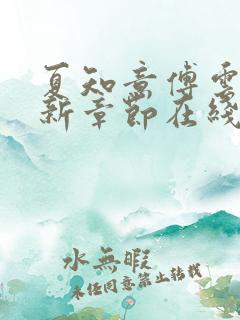 夏知意傅雲
新章節在綫
水無暇
未经同意禁止转载